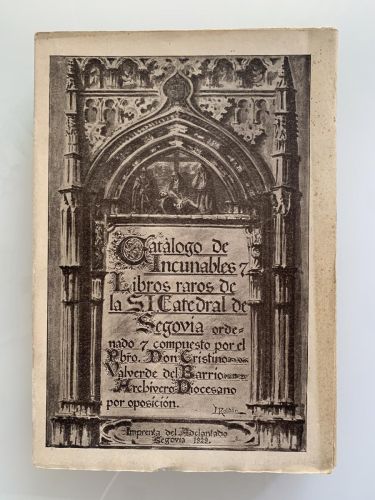 Catálogo de
Incunables y
Libros raros de
la S.I. Catedral de
Segovia orde=
nado y compuesto por el
Pbro. Don Cristino
Valverde del Barrio
Archivero Diocesano
por oposición.
Imprenta del Adelantado
Segovia 1929.